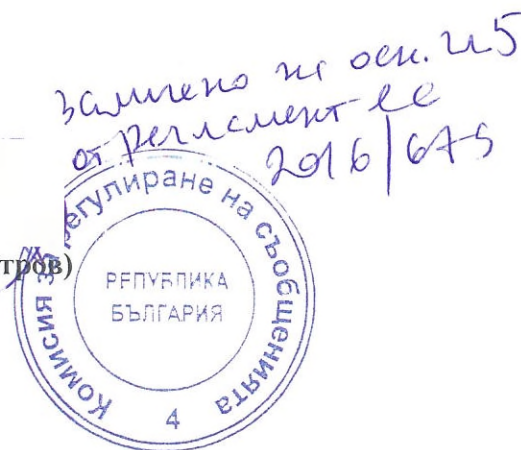 заличено на осн. чл.5
от регламент ЕС
2016/679
тров)
Комисия за регулиране на съобщенията
РЕПУБЛИКА
БЪЛГАРИЯ
4